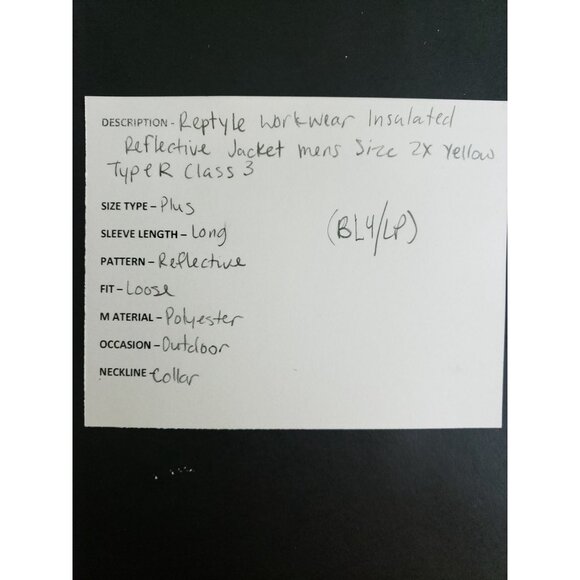 DESCRIPTION - Reptyle Workwear Insulated
Reflective Jacket mens Size 2X Yellow
Type R Class 3
SIZE TYPE - Plus
SLEEVE LENGTH - Long
(BL4/LP)
PATTERN - Reflective
FIT - Loose
MATERIAL - Polyester
OCCASION - Outdoor
NECKLINE - Collar